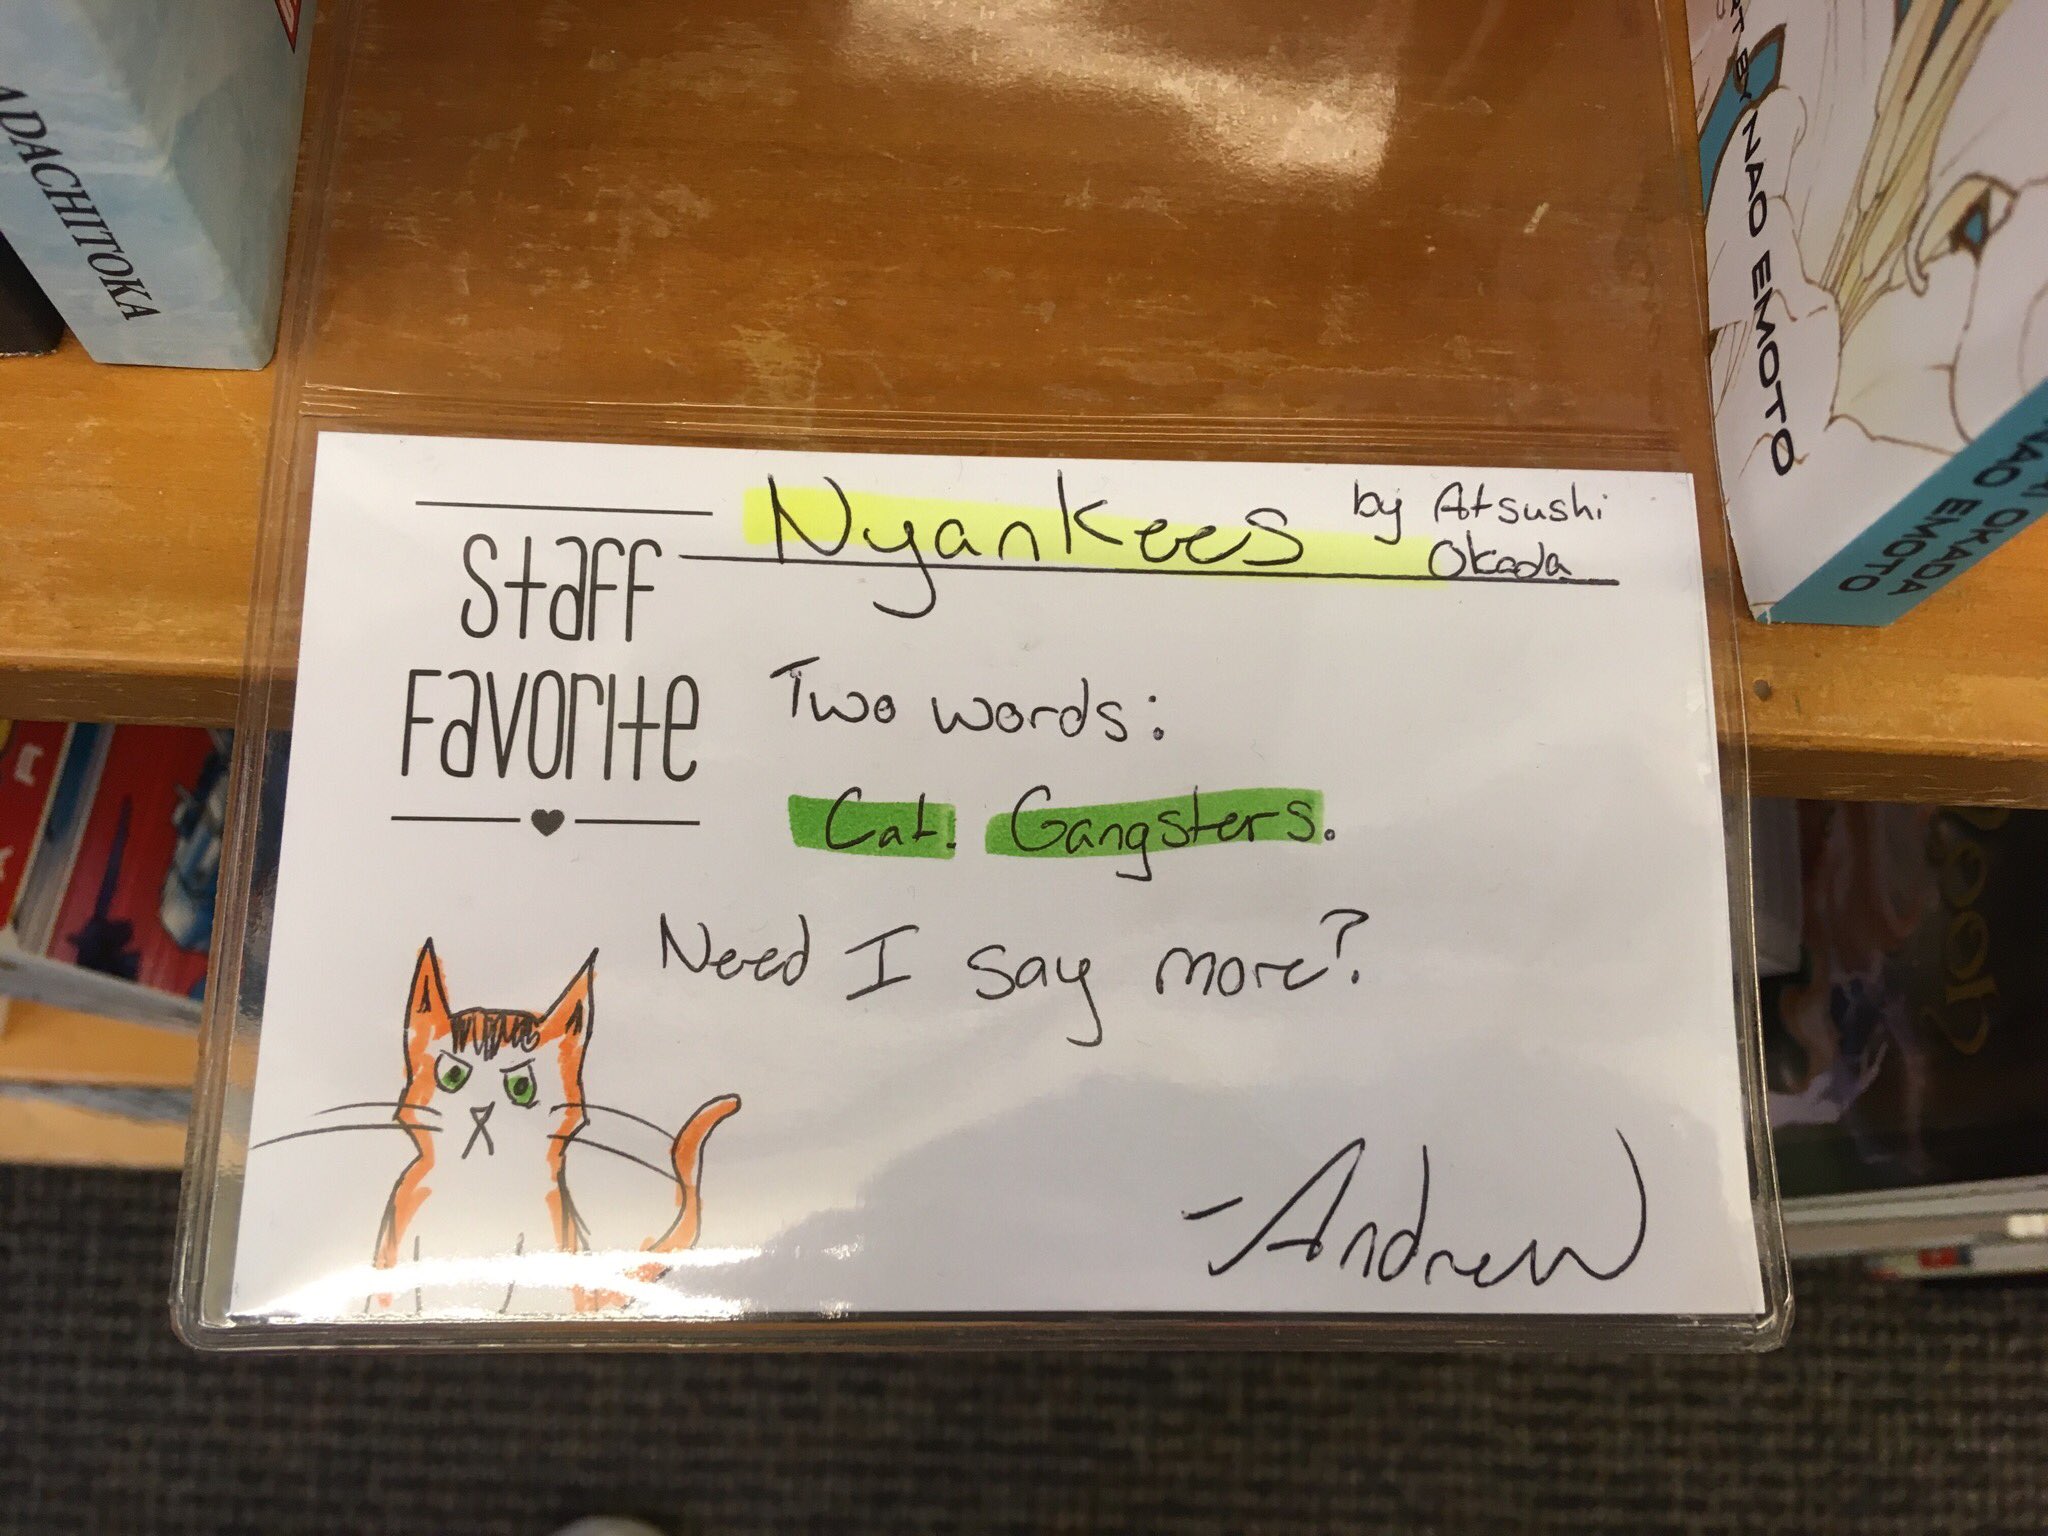 ADACHITOKA
ART BY NAO EMOTO
OKADA
NAO EMOTO
Staff
Favorite
Nyankees by Atsushi
Okada
Two words:
Cat. Gangsters.
Need I say more?
-Andrew